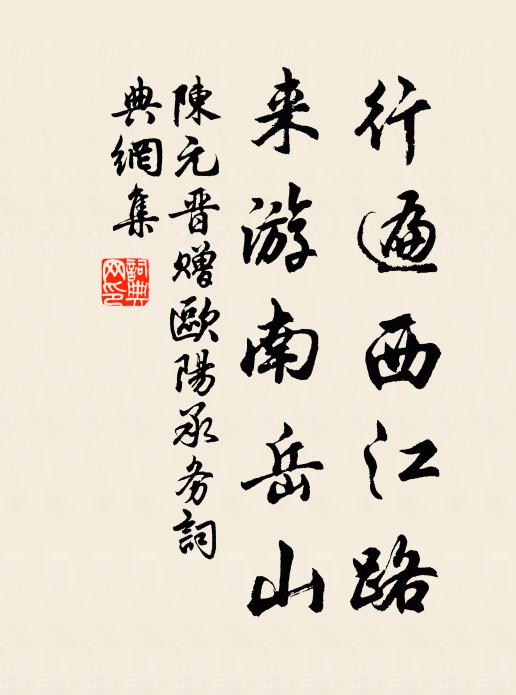 行遍西江路
来游南岳山
陳元晋贈歐陽承务詞
典網集
詞典
网印